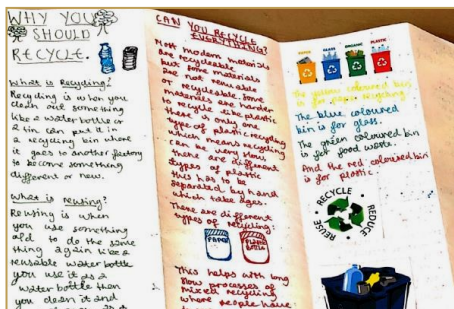 WHY YOU
SHOULD
RECYCLE.
What is Recycling?
Recycling is when you
clean out something
like a water bottle or
a tin can put it in
a recycling bin where
it goes to another factory
to become something
different or new.
What is reusing?
Reusing is when
you use something
old to do the same
thing again like a
reusable water bottle
you use it as a
water bottle then
you clean it and
CAN YOU RECYCLE
EVERYTHING?
Most modern materials
are recyclable
but some materials
are not
recyclable. Some
materials are harder
to recycle like plastic
there is only one
type of plastic recycling
which means recycling
can be very slow
there are different
types of plastic
this has to be
separated by hand
which take ages.
There are different
types of recycling:
PAPER
This helps with long
slow processes of
mixed recycling
where people have
PAPER GLASS ORGANIC PLASTIC
The yellow coloured bin
is for paper recycling.
The blue coloured
bin is for glass.
The green coloured bin
is for food waste.
And the red coloured bin
is for plastic.
RECYCLE
REDUCE
REUSE